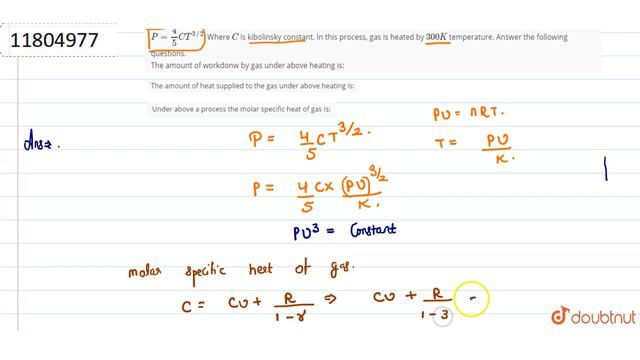 11804977
P = 4/5 CT^3/2 Where C is kibolinsky constant. In this process, gas is heated by 300K temperature. Answer the following
questions.
The amount of workdonw by gas under above heating is:
The amount of heat supplied to the gas under above heating is:
Under above a process the molar specific heat of gas is:
PV = nRT.
Ans:
P = 4/5 CT^3/2.
T = PV/K.
P = 4/5 C× (PV/K.)^3/2
PV^3 = Constant
molar specific heat of gas.
C = CV + R/1-γ ⇒ CV + R/1-3 =
doubtnut